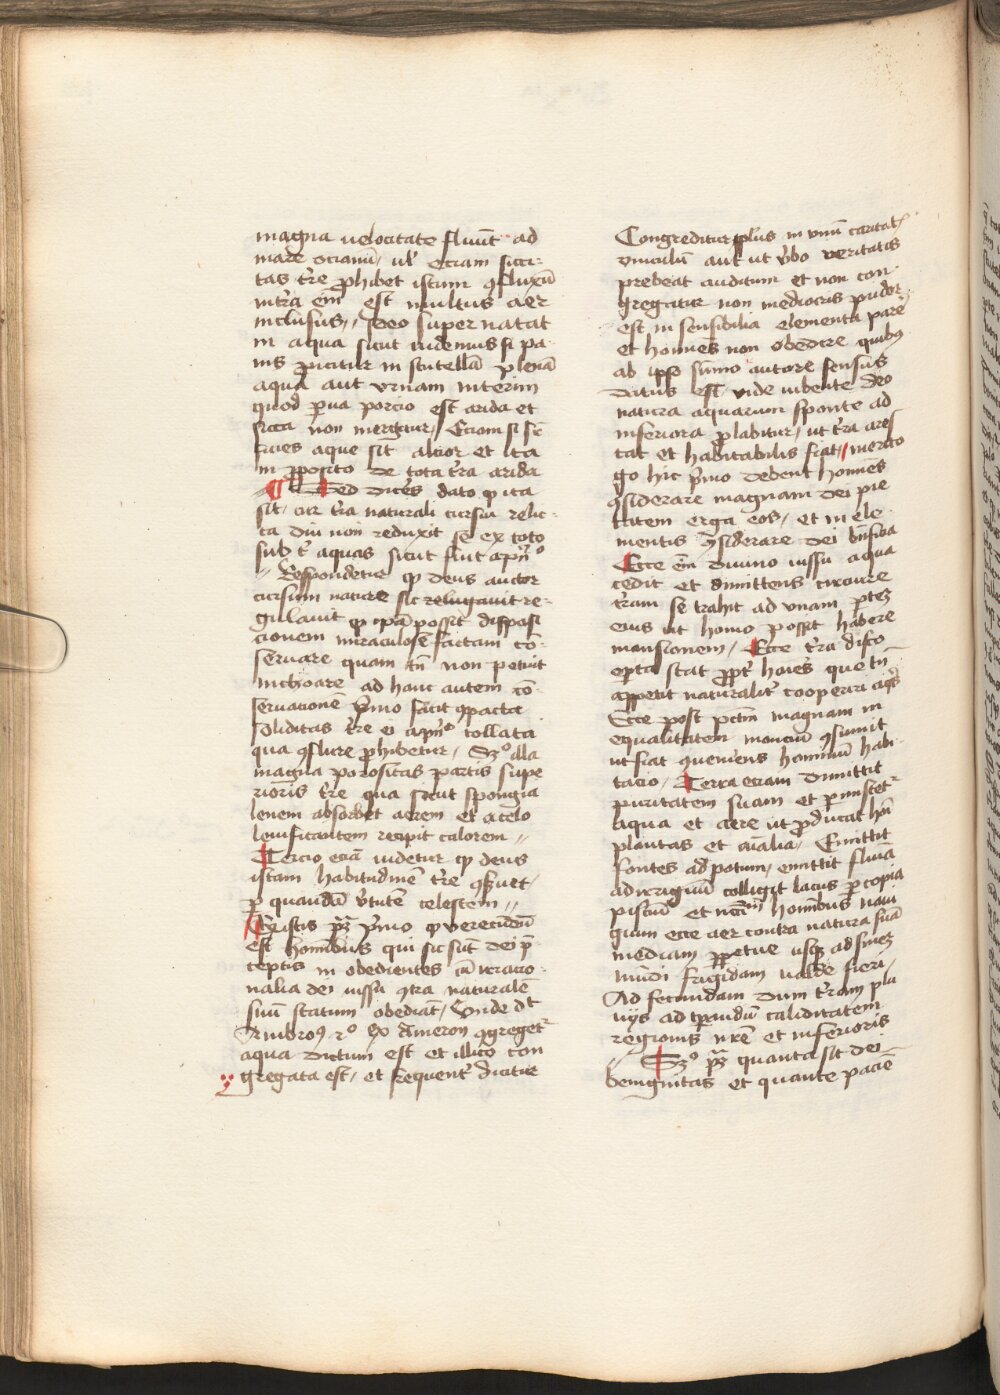 magna velocitate fluūt ad
mare occianū, ul' eciam sicci-
tas tr̄e ꝓhibet istum ꝯfluxū
intra em̄ est multus aer
inclusus,, Ideo supernatat
in aqua sicut videmus si pa-
nis ꝓicitur in scutellā plenā
aqua aut vrnam interim
quod ꝑua porcio est arida et
sicca non mergitur, Eciam si sc̄
aque sit alcior et ita
in ꝓposito de tota tr̄a arida
Sed dices dato ꝙ ita
sit, cur tr̄a naturali cursui relic-
ta diu non reduxit se ex toto
sub aquas sicut fuit a pn̄º
Respondetur ꝙ deus auctor
cursum nature sic religauit re-
gulauit ꝙ ip̄a possit disposi
cionem miraculose factam cō-
seruare quam tn̄ non potuit
inchoare ad hanc autem cō-
seruacionē pͥmo facit ꝯpacta
soliditas tr̄e ei a pn̄º collata
qua ꝯfluere ꝓhibetur, Scdº illa
magna porositas partis supe
rioris tr̄e qua sicut spongia
lenem absorbet aerem et a celo
leuificantem recipit calorem,,
Tercio eciā videtur ꝙ deus
istam habitudinē tr̄e ꝯseruet,
ꝑ quandā v̄tutē celestem,,
Ex istis pꝫ pͥmo ꝙ verecūdū
est hominibus qui sic sūt dei p̄-
ceptis in obedientes cū irracio-
nalia dei iussu ꝯtra naturalē
suū statum obediāt, Vnde dͭ
Ambroꝰ 2º Exameron ꝯgreget͛
aqua dictum est et illico con
gregata est, et frequent͛ dicitur
Congreditur plus in vnū caritatꝭ
vinculū aut ut v̄bo veritatis
prebeat auditum et non con-
gregatur non mediocris pudor
est in sensibilia elementa parē
et homines non obedire quibus
ab ipso sūmo autore sensus
datus est vide iubente deo
natura aquarum sponte ad
inferiora ꝓlabitur, ut tr̄a ares
cat et habitabilis fiat, merito
go hic pͥmo debent homines
ꝯsiderare magnam dei pie
tatem erga eos, et in ele-
mentis ꝯsiderare dei
Ecce em̄ diuino iussu aqua
cedit et dimittens circuire
tr̄am se trahit ad vnam ptem
eius ut homo possit habere
mansionem, Ecce tr̄a disco
operta stat ꝓpt͛ hoīes que tn̄
appetit naturalit͛ cooperiri aqͥs
Ecce post pctm̄ magnam in
equalitatem moncium ꝯsumit
ut fiat ꝯueniens hominū habi-
tacio, Terra eciam dimittit
puritatem suam et ꝑmiscet͛
aqua et aere ut ꝓducat hōi
plantas et aīalia, Emittit
fontes ad potum, emittit fluuiā
ad irriguū colligit lacus ꝓ copia
pisciū et hominibus naui
gium ecce aer contra natura suā
mediam ꝑpetue usqꝫ ad finē
mūdi frigidam valde fieri,
Ad fecundam dum tr̄am plu
uijs ad tꝑandū caliditatem
regionis nr̄e et inferioris
Scdº pꝫ quanta sit dei
benignitas et quante paciē